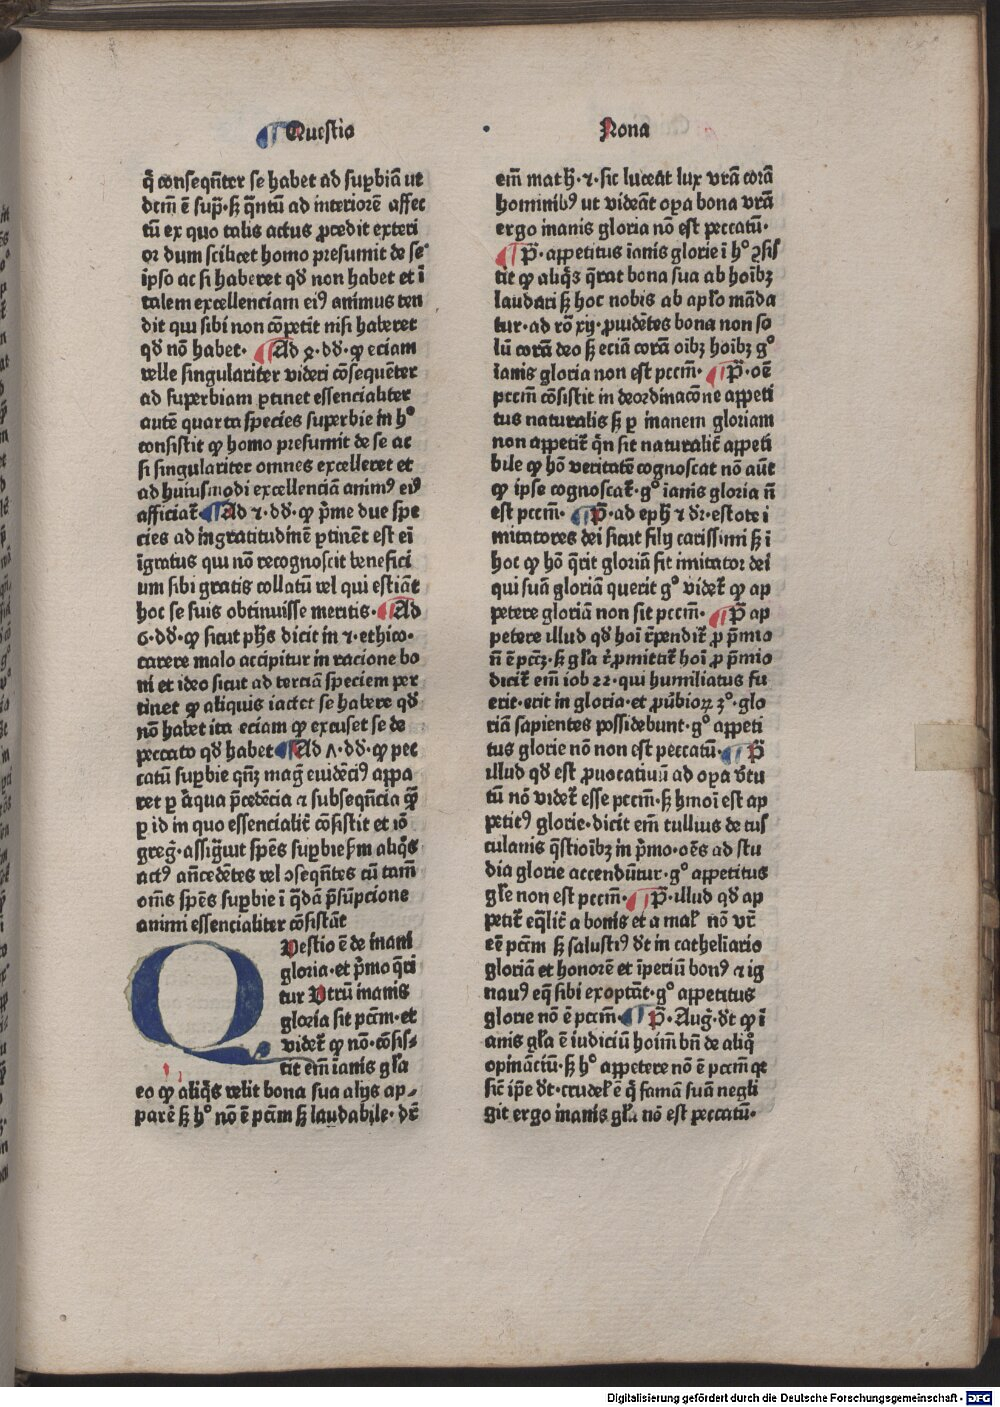 Questio
Nona
q̄ conseqn̄ter se habet ad suꝑbiā ut
dcm̄ ē sup̄· sꝫ q̄ntū ad interiorē affec
tū ex quo talis actus ꝓcedit exteri
or dum scilicet homo presumit de se
ipso ac si haberet qđ non habet et ī
talem excellenciam eiꝰ animus ten
dit qui sibi non cōpetit nisi haberet
qđ nō habet· Ad ꝯ· dđ· ꝙ eciam
velle singulariter videri cōsequēter
ad superbiam ꝑtinet essencialiter
autē quarta species superbie in hͦ
consistit ꝙ homo presumit de se ac
si singulariter omnes excelleret et
ad huiusmodi excellenciā animꝰ eiꝰ
afficiat̄ Ad ꝛ· dđ· ꝙ p̄me due spe
cies ad ingratitudinē ꝑtinēt est eī
īgratus qui nō recognoscit benefici
um sibi gratis collatū vel qui estiāt
hoc se suis obtinuisse meritis· Ad
6· dđ· ꝙ sicut ph̄s dicit in ꝛ· ethico·
carere malo accipitur in racione bo
ni et ideo sicut ad terciā speciem per
tinet ꝙ aliquis iactet se habere qđ
nō habet ita eciam ꝙ excuset se de
peccato qđ habet Ad ʌ· dđ· ꝙ pec
catū suꝑbie qn̄ꝫ maḡ euidēciꝰ appa
ret ꝑ āqua p̄cedēcia ⁊ subseqn̄cia q̄ꝫ
ꝑ id in quo essencialit̄ cōsistit et iō
greḡ· assiḡuit sp̄es suꝑbie ẜm aliq̄s
actꝰ an̄cedētes vel ↄseqn̄tes cū tam̄
om̄s sp̄es suꝑbie ī q̄dā p̄sūpcione
animi essencialiter cōsistāt
Questio ē de inani
gloria· et p̄mo q̄ri
tur Utrū inanis
gloria sit pcm̄· et
videt̄ ꝙ nō· cōsis⸗
tit em̄ īanis gl̄a
eo ꝙ aliq̄s velit bona sua alijs ap⸗
parē sꝫ hͦ nō ē pcm̄ sꝫ laudabile· dr̄
em̄ math̄· ꝛ· sic luceat lux vr̄a corā
hominibꝰ ut videāt oꝑa bona vr̄a
ergo inanis gloria nō est peccatū·
P̄· appetitus īanis glorie ī hͦ ↄsis
tit ꝙ aliq̄s q̄rat bona sua ab hoībꝫ
laudari sꝫ hoc nobis ab apl̄o māda
tur· ad rō xij· ꝓuidētes bona non so
lū corā deo sꝫ eciā corā oībꝫ hoībꝫ gͦ
īanis gloria non est pccm̄· P̄· oē
pccm̄ cōsistit in deordinacōne appeti
tus naturalis sꝫ ꝑ inanem gloriam
non appetit̄ q̄n sit naturalit̄ appeti
bile ꝙ hō veritatē cognoscat nō aūt
ꝙ ipse cognoscat̄· gͦ īanis gloria n̄
est pccm̄· P̄· ad eph̄ ꝛ dr̄· estote i
mitatores dei sicut filij carissimi sꝫ ī
hoc ꝙ hō q̄rit gloriā fit imitator dei
qui suā gloriā querit gͦ videt̄ ꝙ ap
petere gloriā non sit pccm̄· P̄ ap
petere illud qđ hoī īꝑendit̄ ꝓ p̄mio
n̄ ē pccꝫ· sꝫ gl̄a īꝓmittit̄ hoī ꝓ p̄mio
dicit̄ em̄ iob 22· qui humiliatus fu
erit· erit in gloria· et ꝓūbioꝝ 3ͦ· glo
riā sapientes possidebunt· gͦ appeti
tus glorie nō non est peccatū· P̄
illud qđ est ꝓuocatiuū ad oꝑa v̄tu
tū nō videt̄ esse pccm̄· sꝫ hmoī est ap
petitꝰ glorie· dicit em̄ tullius de tus
culanis q̄stioībꝫ in p̄mo· oēs ad stu
dia glorie accendūtur· gͦ appetitus
gl̄e non est pccm̄· P̄· illud qđ ap
petit̄ eq̄lit̄ a bonis et a mal̄ nō vr̄
eē pcm̄ sꝫ salustiꝰ đt in cathelīario
gloriā et honorē et īperiū bonꝰ ⁊ ig
nauꝰ eq̄ sibi exoptāt· gͦ appetitus
glorie nō ē pccm̄· P̄· Auḡ· đt ꝙ ī
anis gl̄a ē iudiciū hoīm bn̄ de aliq̄
opināciū· sꝫ hͦ appetere nō ē pccm̄ qt
sic̄ ip̄e đt· crudel̄ ē q̄ famā suā negli
git ergo inanis gl̄a nō est peccatū·
Digitalisierung gefördert durch die Deutsche Forschungsgemeinschaft - DFG